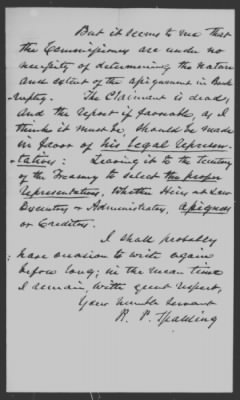 But it seems to me that
the Commissioners are under no
necessity of determining the Nature
and extent of the assignment in Bank
-ruptcy. The Claimant is dead,
and the report if favorable, as I
think it must be, should be made
in favor of his legal represen-
tatives: Leaving it to the Secretary
of the Treasury to select the proper
representatives, Whether Heirs at Law
Executors or Administrators, assignees
or Creditors.
I shall probably
have occasion to write again
before long; in the mean time
I remain, with great respect,
Your humble servant
R. P. Spalding